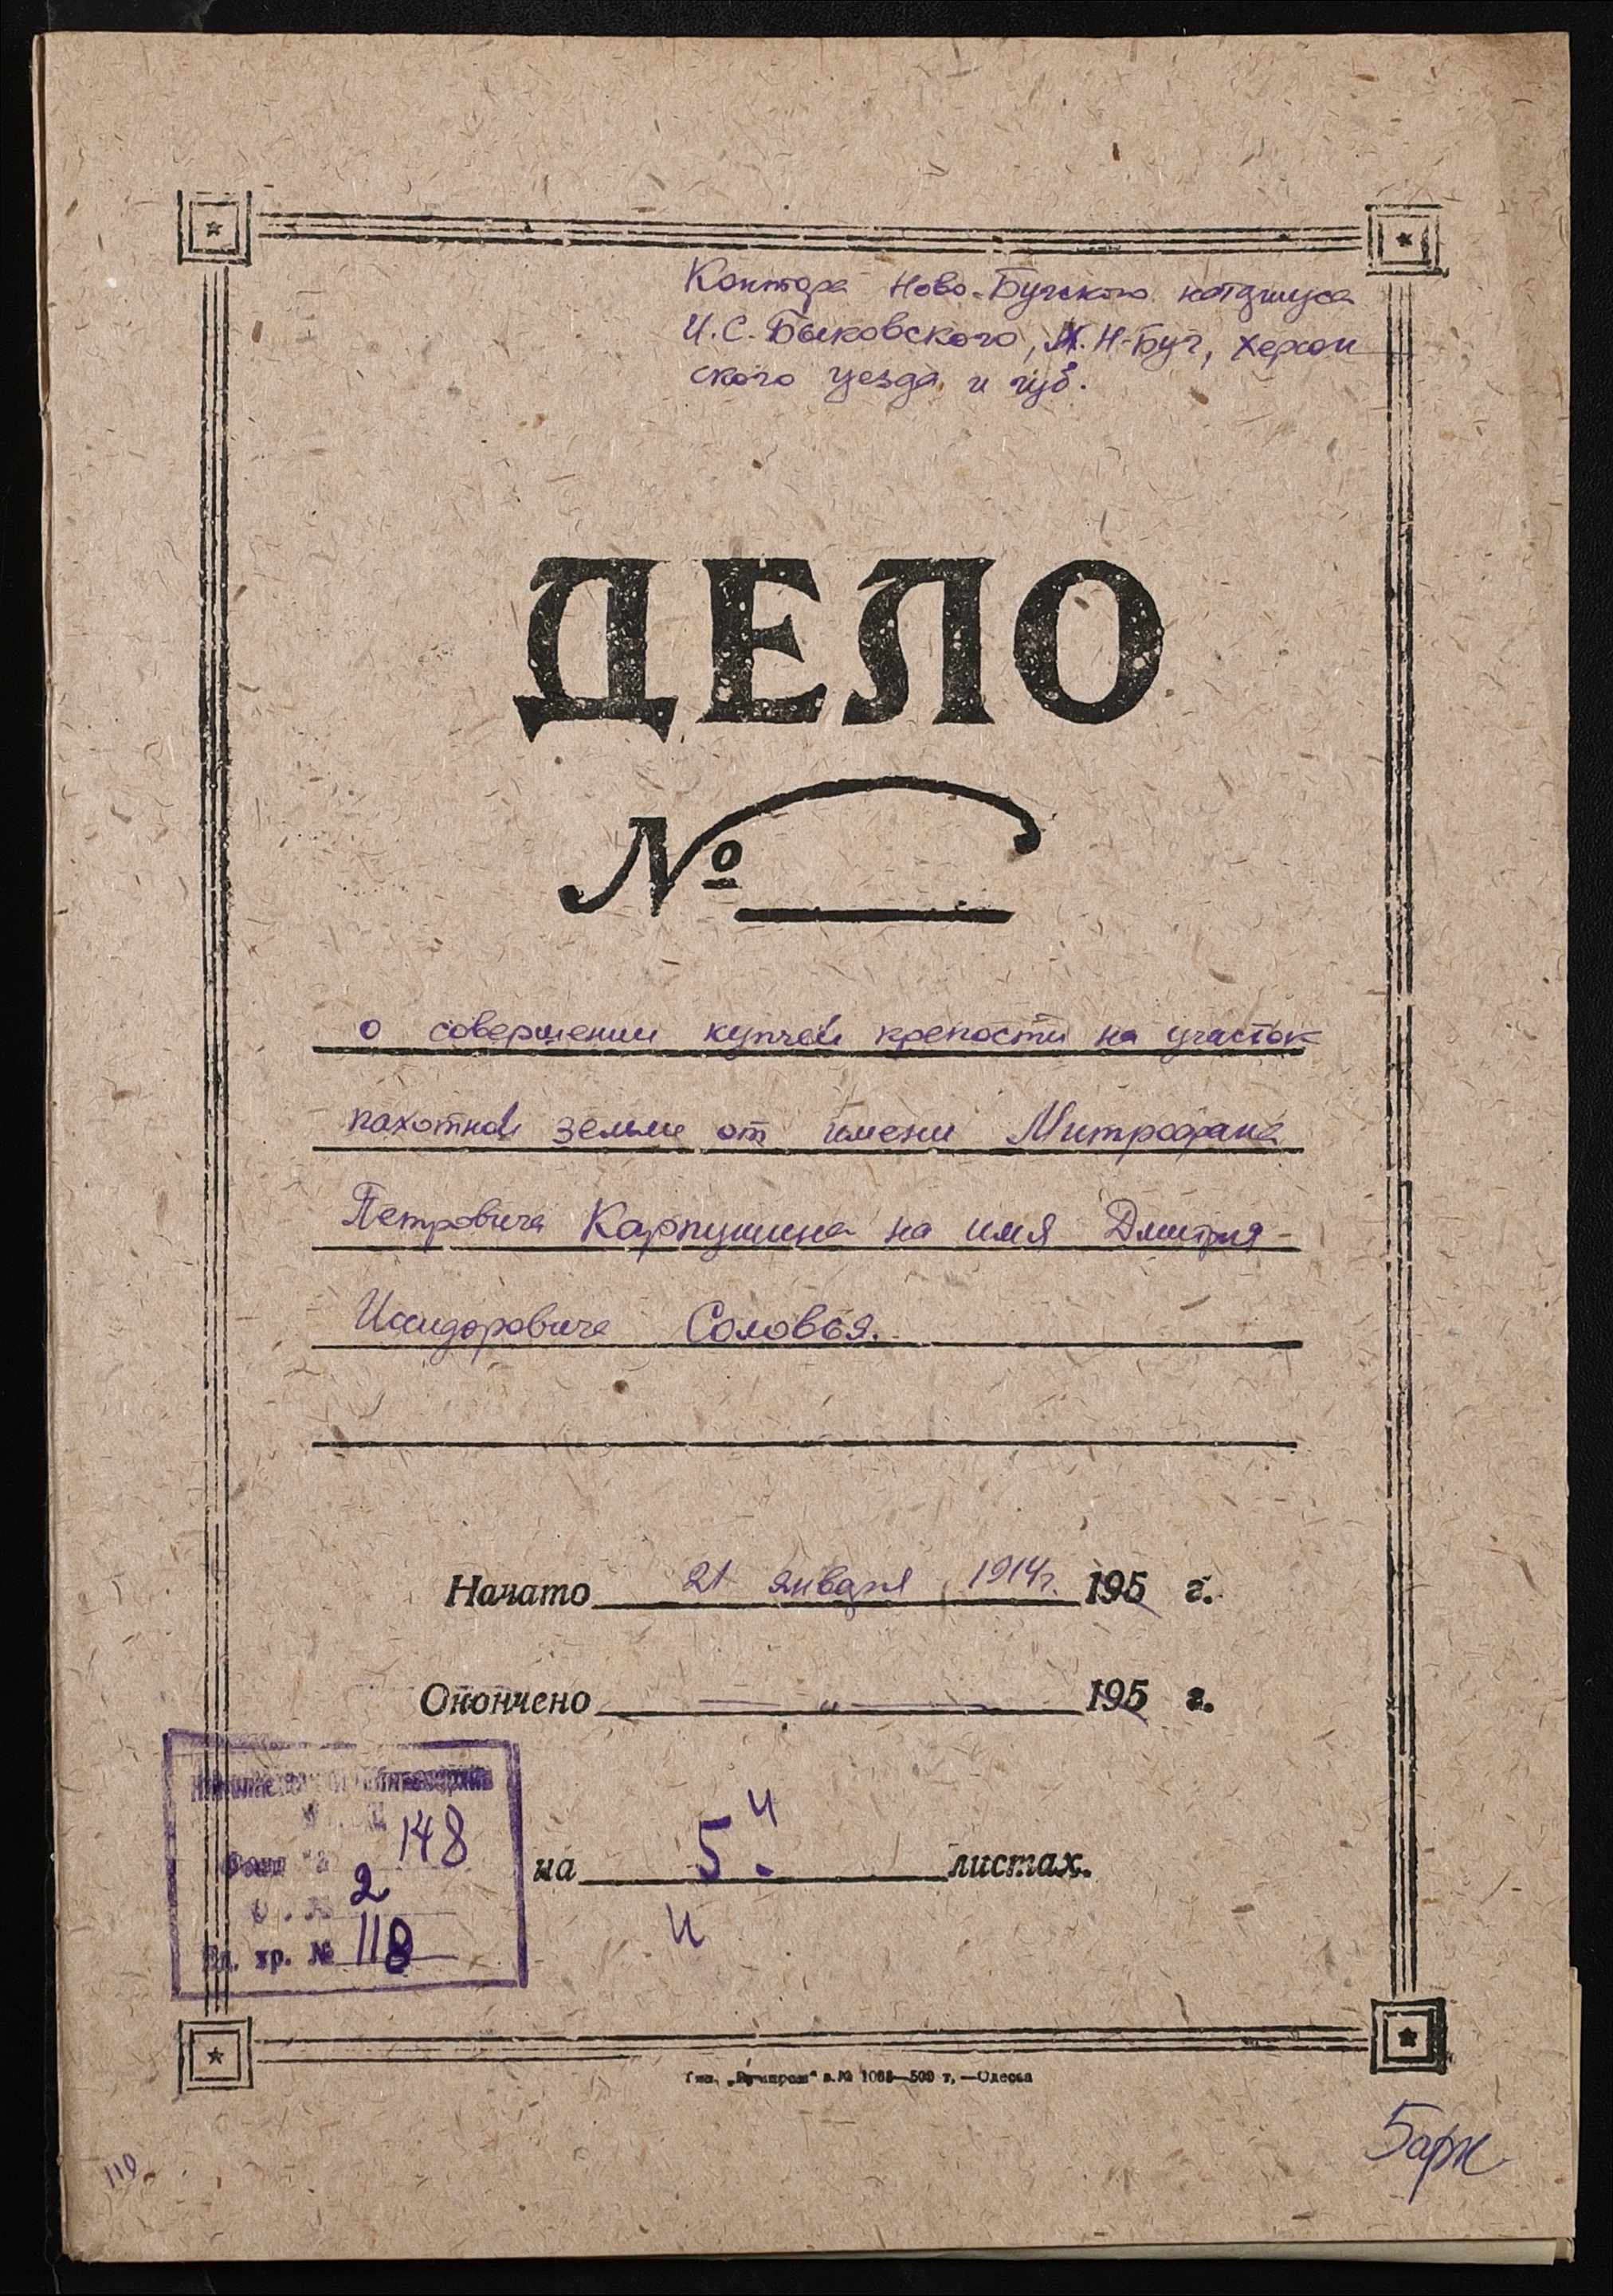 Контора Ново-Бугского нотариуса
И.С. Быковского, М. Н-Буг, Херсон
ского уезда и губ.
ДЕЛО
№
о совершении купчей крепости на участок
пахотной земли от имени Митрофана
Петровича Карпушина на имя Дмитрия
Исидоровича Соловья.
Начато 21 января 1914г. 195 г.
Окончено — " — 195 г.
148
2
Ед. хр. № 118
на 5. листах.
4
и
№ 1068—500 т,—Одесса
5арк
110